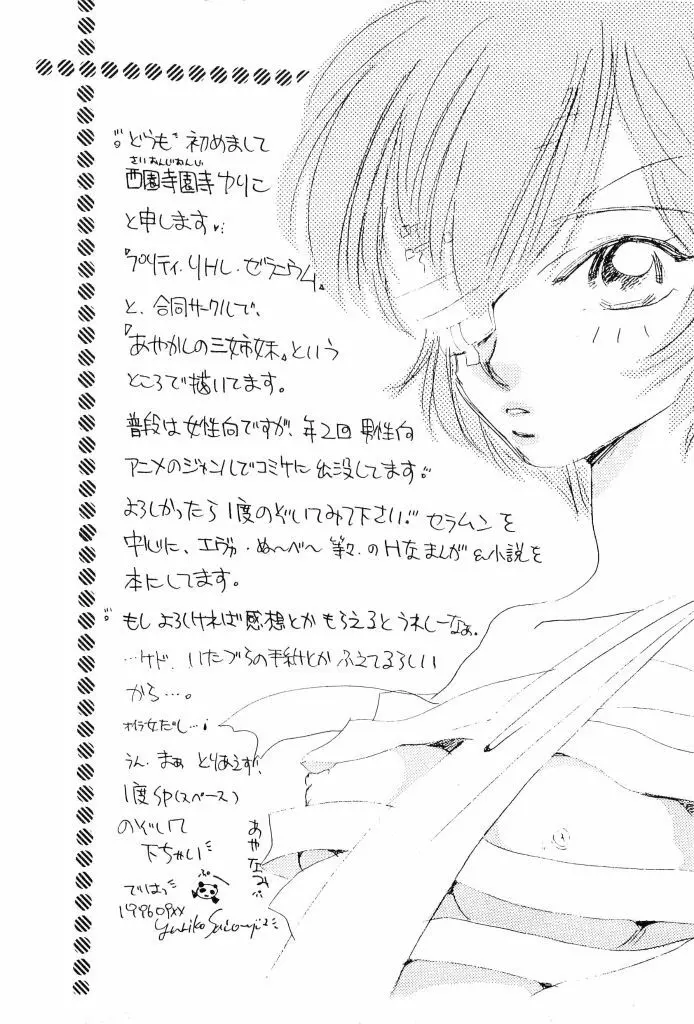 "どうも" 初めまして
さいおんじおんじ
西園寺園寺 ゆりこ
と申します
『プリティ・リトル・ゼラニウム』
と、合同サークルで、
『あやかしの三姉妹』という
ところで描いてます。
普段は女性向ですが、年2回 男性向
アニメのジャンルでコミケに出没してます。
よろしかったら 1度のぞいてみて下さい。 セラムンを
中心に、エヴァ・ぬ〜べ〜 等々.のHなまんが&小説を
本にしてます。
もしよろしければ感想とかもらえるとうれしーなぁ。
…ケド、いたづらの手紙とか ふえてるらしい
から…。
オイラ女だし…!
うん、まぁ とりあえず、
1度SP(スペース)
のぞいて
下ちゃい
ぷー
ではっ
199609XX
Yuriko Saionji2
あやなみ